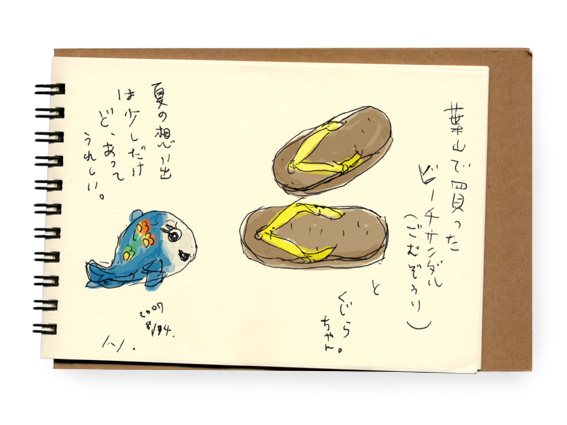 葉山で買った
ビーチサンダル
(ごむぞうり)
と
くじら
ちゃん。
夏の想い出
は少しだけ
ど、あって
うれしい。
2007
8/24.